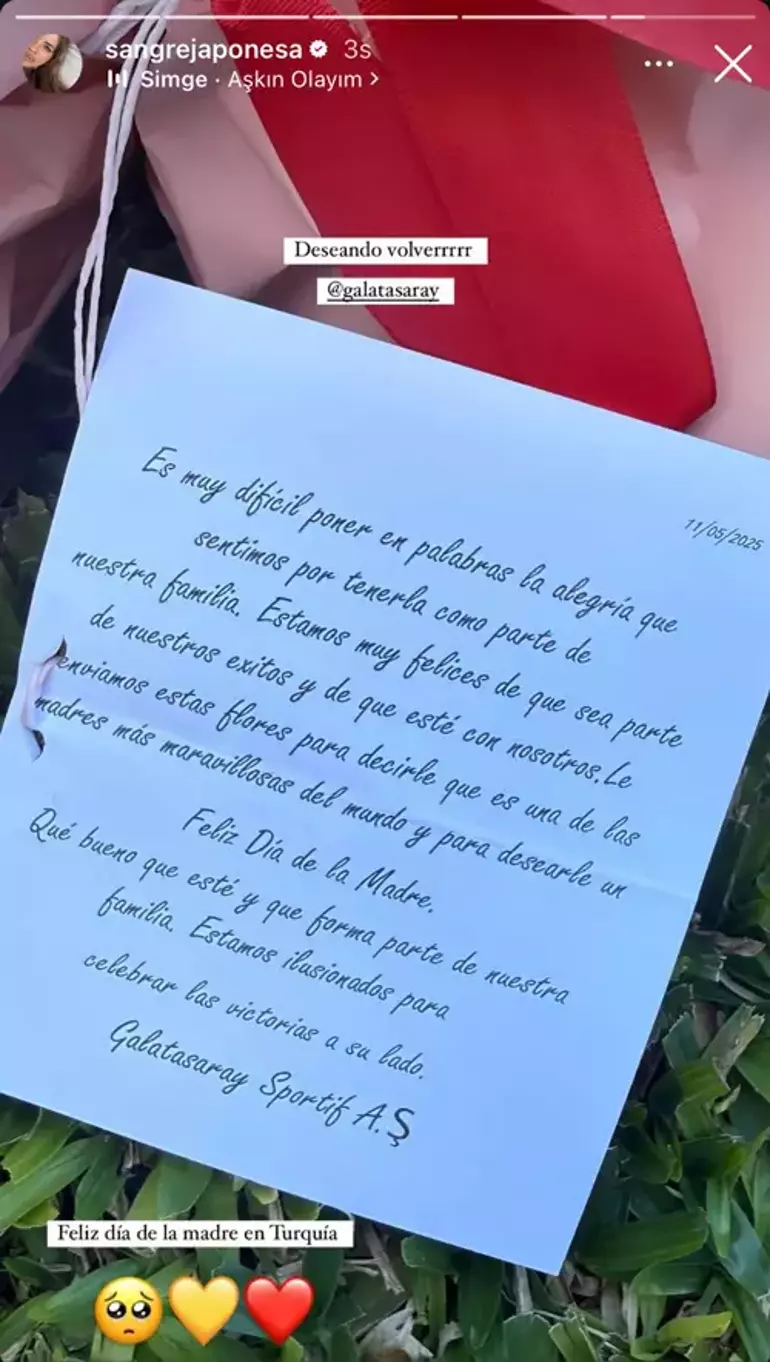 sangrejaponesa 3s
Simge · Aşkın Olayım >
Deseando volverrrrr
@galatasaray
11/05/2025
Es muy difícil poner en palabras la alegría que
sentimos por tenerla como parte de
nuestra familia. Estamos muy felices de que sea parte
de nuestros exitos y de que esté con nosotros.Le
enviamos estas flores para decirle que es una de las
madres más maravillosas del mundo y para desearle un
Feliz Día de la Madre.
Qué bueno que esté y que forma parte de nuestra
familia. Estamos ilusionados para
celebrar las victorias a su lado.
Galatasaray Sportif A.Ş
Feliz día de la madre en Turquía